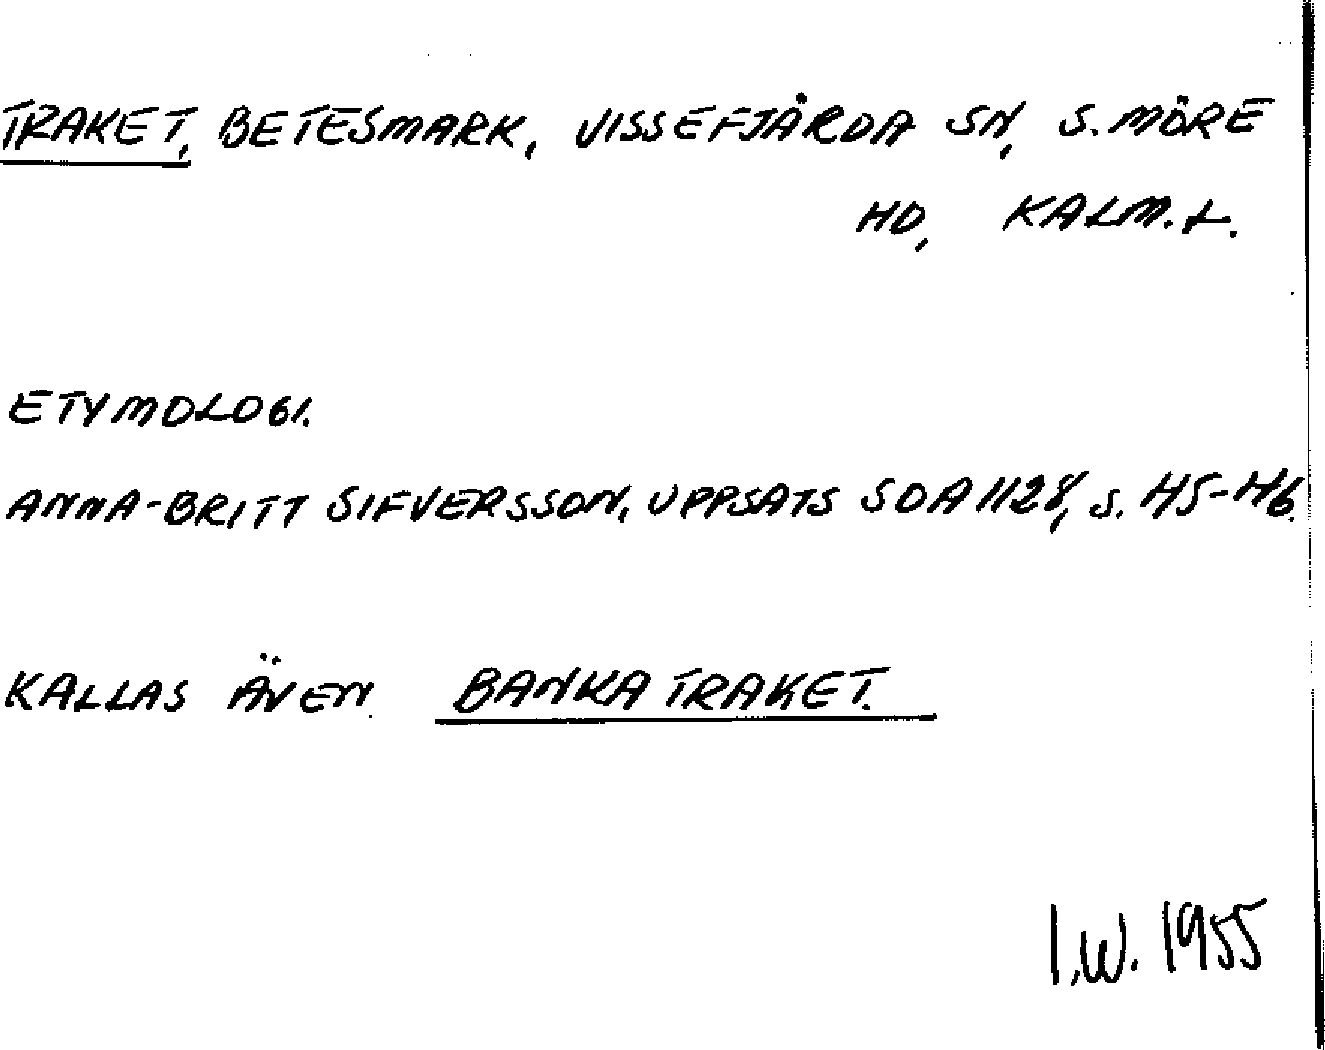 TRAKET, BETESMARK, VISSEFJÄRDA SN, S. MÖRE
HD, KALM. L.
ETYMOLOGI.
ANNA-BRITT SIFVERSSON, UPPSATS SOA 1128, s. 45-46.
KALLAS ÄVEN BANKATRAKET.
I.W. 1955